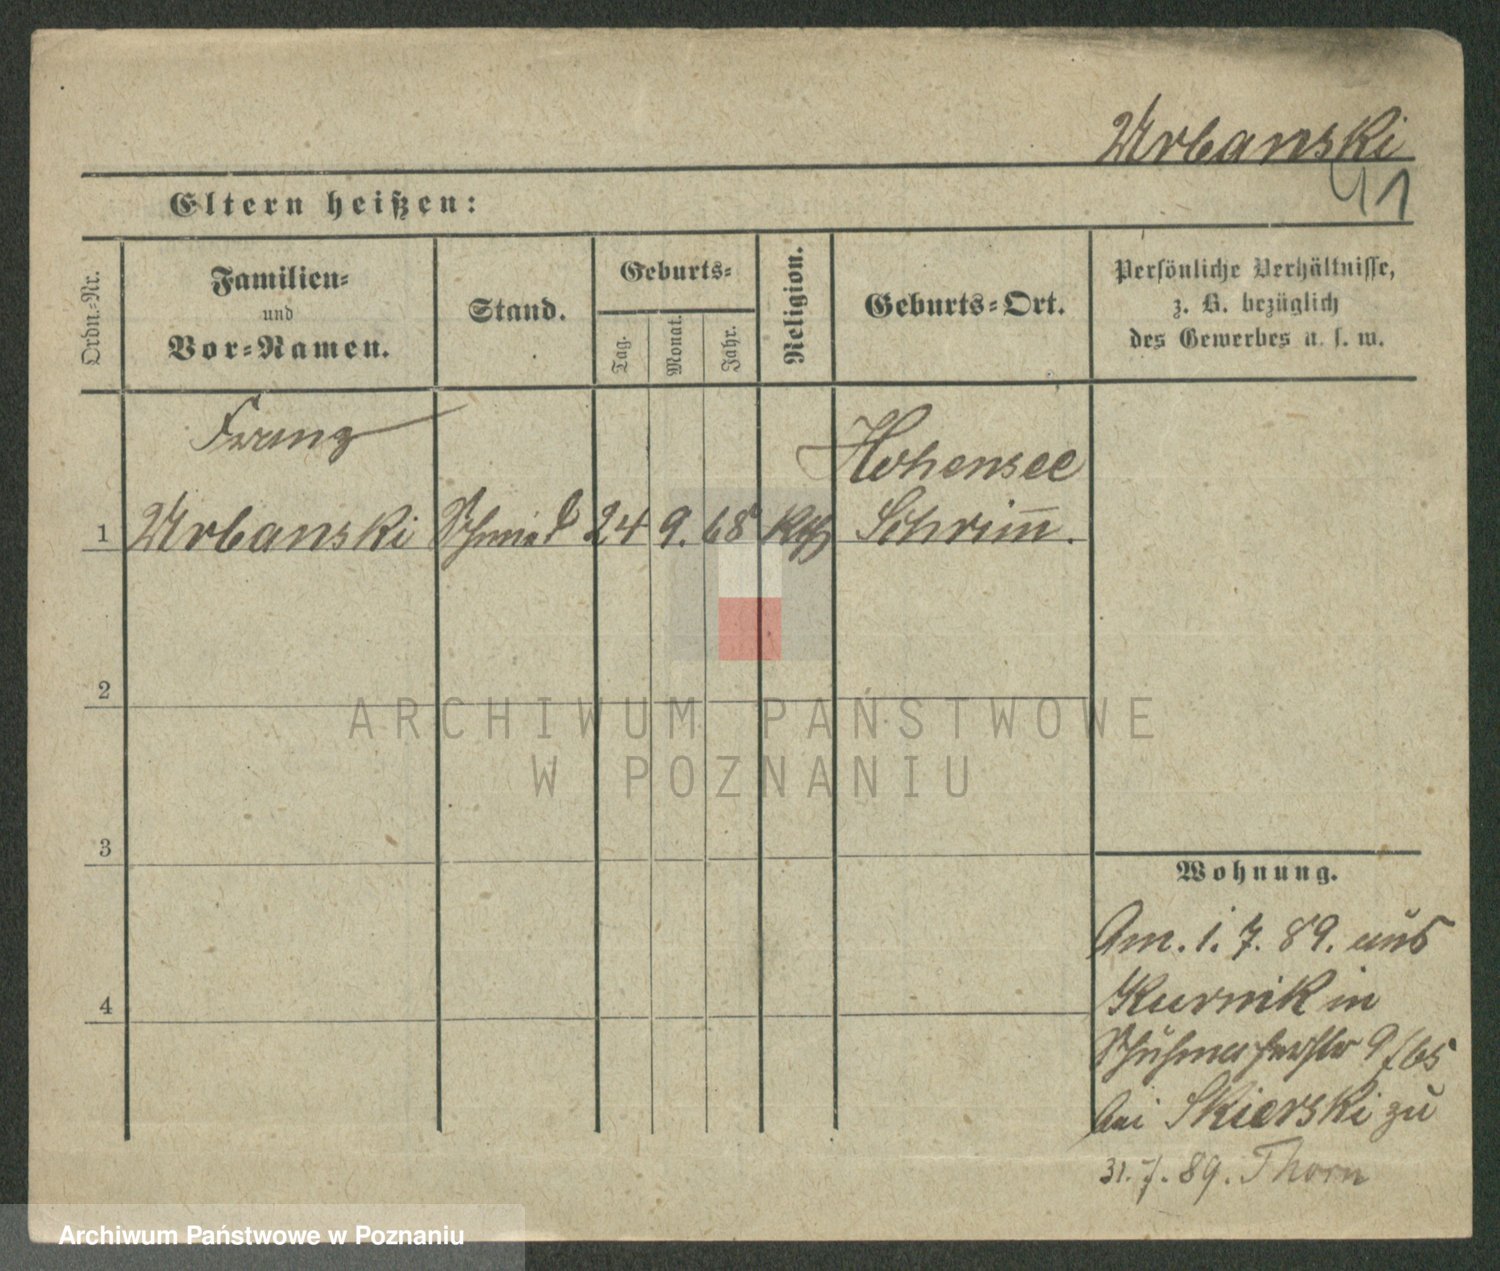 Urbanski
41
Eltern heißen:
Ordn.-Nr.
Familien-
und
Vor-Namen.
Stand.
Geburts-
Tag.
Monat.
Jahr.
Religion.
Geburts-Ort.
Persönliche Verhältnisse,
z. B. bezüglich
des Gewerbes u. s. w.
Franz
Hohensee
1 Urbanski Schmied 24 9. 68 Kth Schrim̅.
2
3
4
Wohnung.
Am. 1. 7. 89. aus
Kurnik in
Schuhmacherstr 9/
bei Skierski zu
31.7.89. Thorn
ARCHIWUM PAŃSTWOWE
W POZNANIU
Archiwum Państwowe w Poznaniu